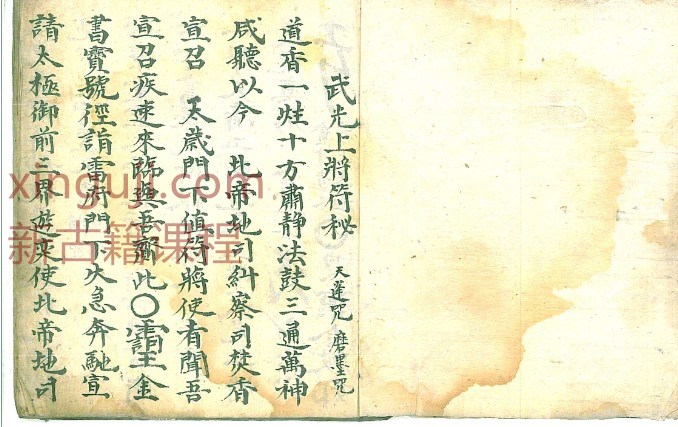 武光上將符秘 天蓬咒 磨墨咒
道香一炷十方肅静法鼓三通萬神
咸聽以今 北帝地司糾察司焚香
宣召 太歲門下值符將使者聞吾
宣召疾速來臨與吾齎此〇金
書寶號徑詣雷府門下火急奔馳宣
請太極御前三界遊奕使北帝地司
xinguji.com
新古籍课程